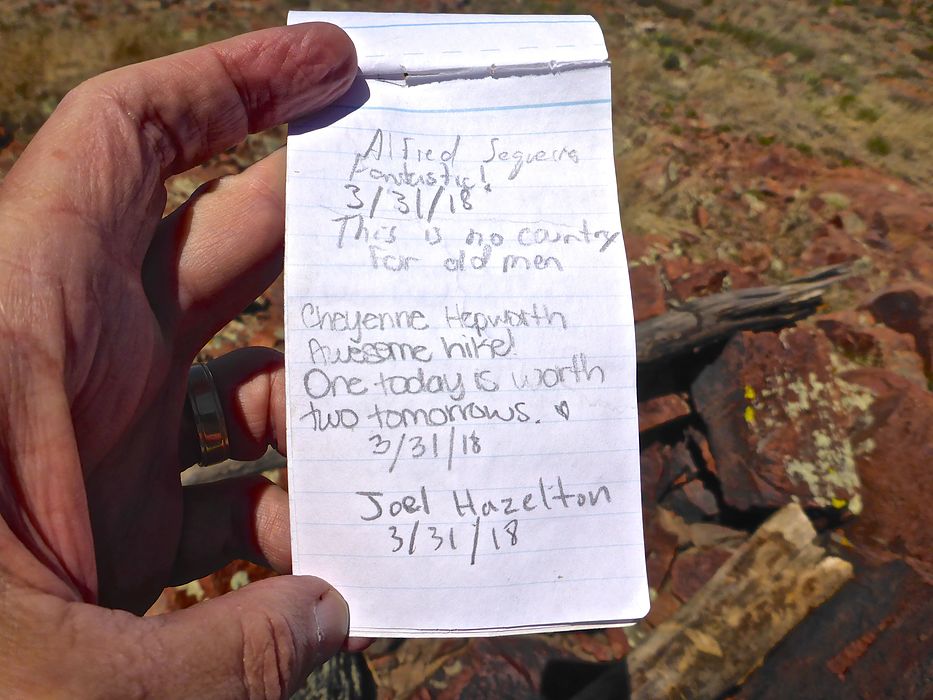 Alfred Segueira
Fantastic!
3/31/18
This is no country
For old men
Cheyenne Hepworth
Awesome hike!
One today is worth
two tomorrows. ♥
3/31/18
Joel Hazelton
3/31/18